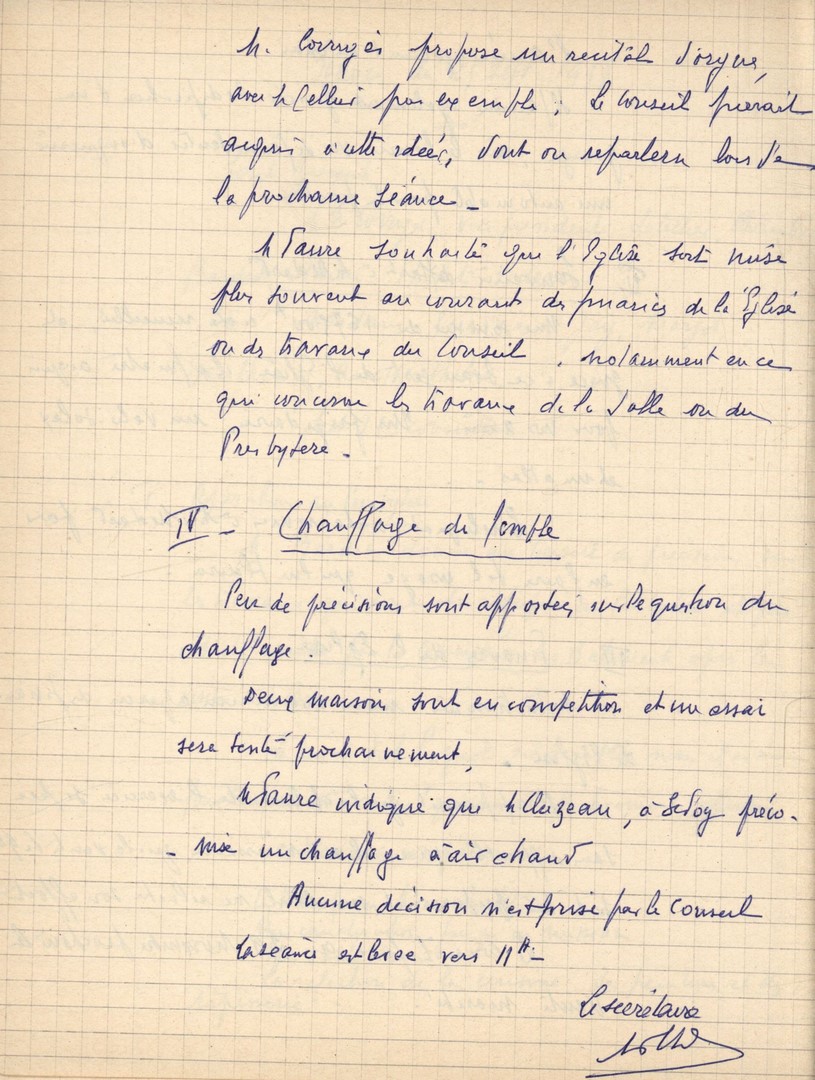 M. Corrigès propose un recital d'orgue,
avec M Cellier par exemple ; Le Conseil
acquis à cette idée, dont on reparlera lors de
la prochaine séance _
M Faure souhaite que l'Eglise soit mise
plus souvent au courant des de la Eglise
ou ds travaux du Conseil, notamment en ce
qui concerne les travaux de la Salle ou du
Presbytère _
IV - Chauffage du Temple
Peu de précisions sont apportées sur le question du
chauffage.
Deux maisons sont en compétition et un essai
sera tenté prochainement,
M Faure indique que M Cluzeau, à préco-
- nise un chauffage à air chaud
Aucune décision n'est prise par le Conseil
La séance est levée vers 11 H. _
Le secrétaire